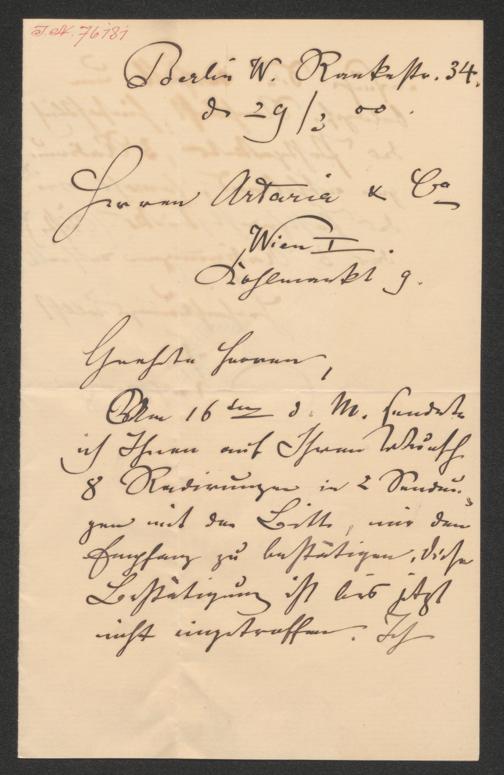 J.N. 76181
Berlin W. Rankestr. 34.
d. 29/3 00.
Herren Artaria & Co
Wien I.
Kohlmarkt 9.
Geehrte Herren,
Am 16ten d. M. sandte
ich Ihnen auf Ihren Wunsch
8 Radirungen in 2 Sendun-
gen mit der Bitte, mir den
Empfang zu bestätigen. Diese
Bestätigung ist bis jetzt
nicht eingetroffen. Ich